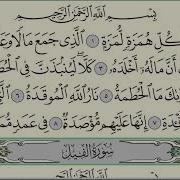 بِسْمِ اللَّهِ الرَّحْمَٰنِ الرَّحِيمِ
كُلِّ هُمَزَةٍ لُّمَزَةٍ ١ الَّذِي جَمَعَ مَالًا وَعَ
أَنَّ مَالَهُ أَخْلَدَهُ ٣ كَلَّا لَيُنبَذَنَّ فِي الْحُطَ
كَ مَا الْحُطَمَةُ ٥ نَارُ اللَّهِ الْمُوقَدَةُ ٦
ئِدَةِ ٧ إِنَّهَا عَلَيْهِم مُّؤْصَدَةٌ ٨ فِي عَمَدٍ مُّمَ
سُورَةُ الْفِيلِ